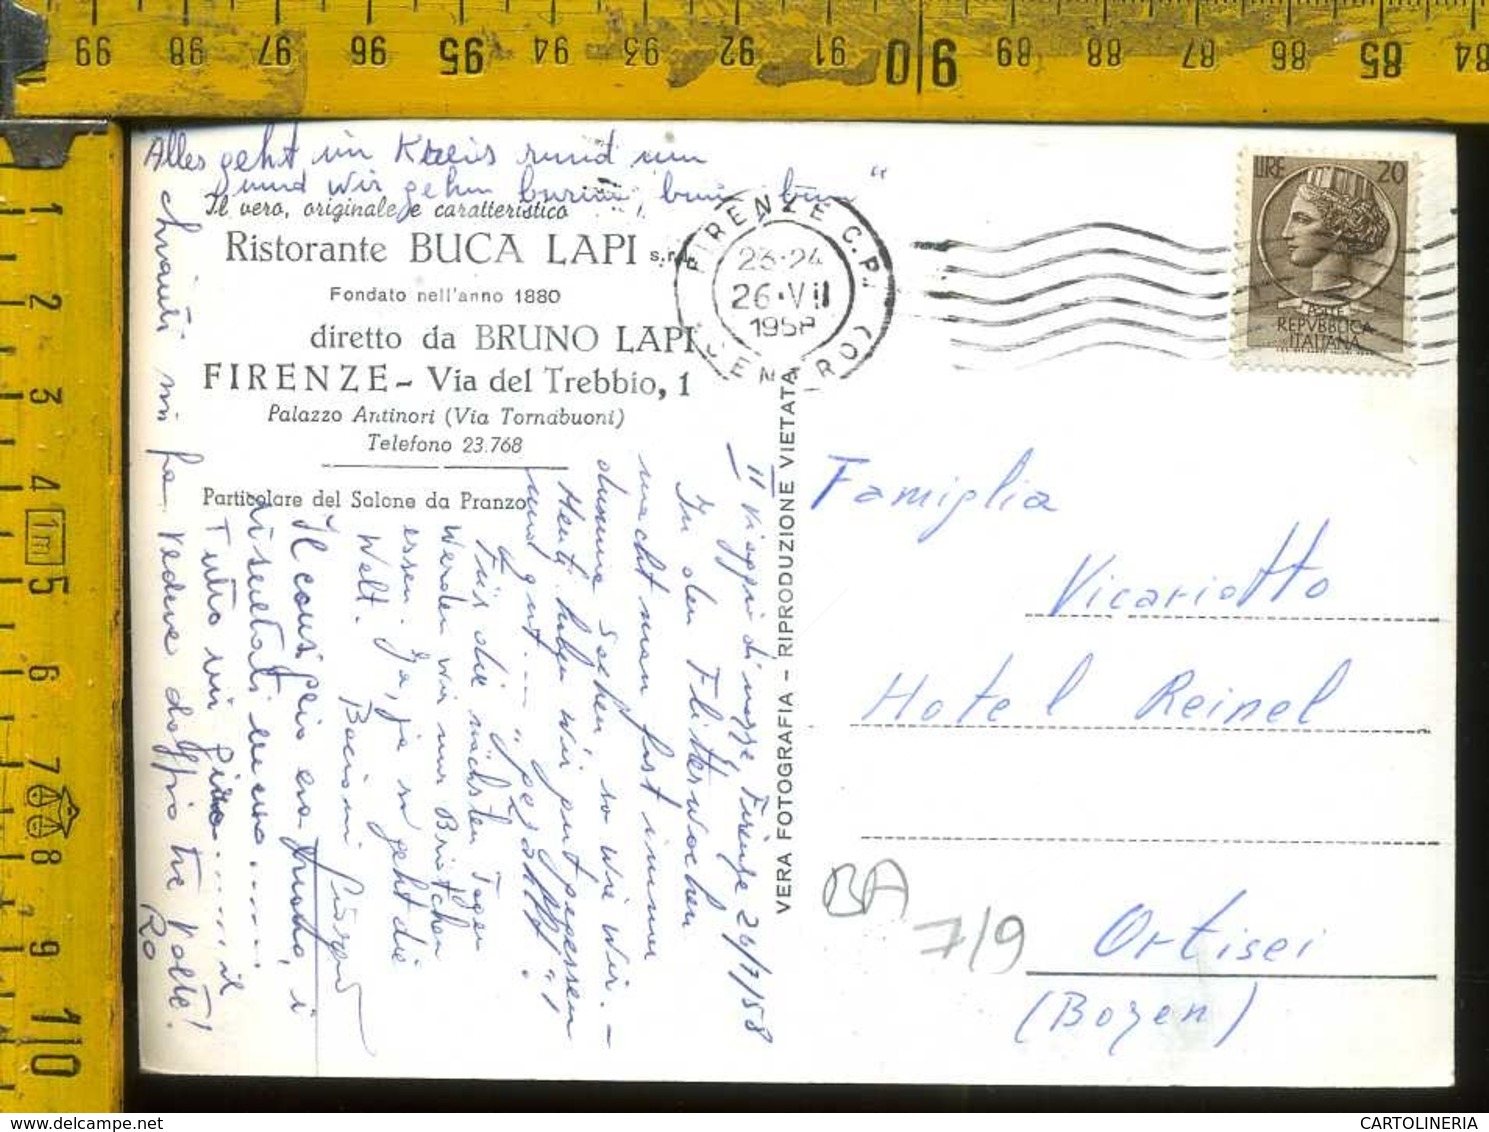 99 98 97 96 95 94 93 92 91 90 89 88 87 86 85 84
1 2 3 4 1m 5 6 7 8 9 10
Alles geht im Kreis rund um
und wir gehn bum, bum, bum"
Il vero, originale e caratteristico
Ristorante BUCA LAPI s.r.l.
Fondato nell'anno 1880
diretto da BRUNO LAPI
FIRENZE - Via del Trebbio, 1
Palazzo Antinori (Via Tornabuoni)
Telefono 23.768
Particolare del Salone da Pranzo
FIRENZE C.P.
CENTRO
23-24
26·VII
1958
LIRE 20
POSTE
REPVBBLICA
ITALIANA
VERA FOTOGRAFIA - RIPRODUZIONE VIETATA
II Viaggio di nozze Firenze 26/7/58
In den Flitterwochen
macht man fast immer
dumme Sachen, so wie wir. -
Heute haben wir gut gegessen
und gut.... "gesöfff".!
Für die nächsten Tagen
werden wir nur Brötchen
essen. Ja, ja so geht die
Welt. Bacioni
Il consiglio era giusto, i
risultati meno.....
Tutto in giro....... il
chianti mi fa vedere doppio tre volte!
Ro
Famiglia
Vicariotto
Hotel Reinel
Ortisei
(Bozen)
BA
7/9
www.delcampe.net
CARTOLINERIA